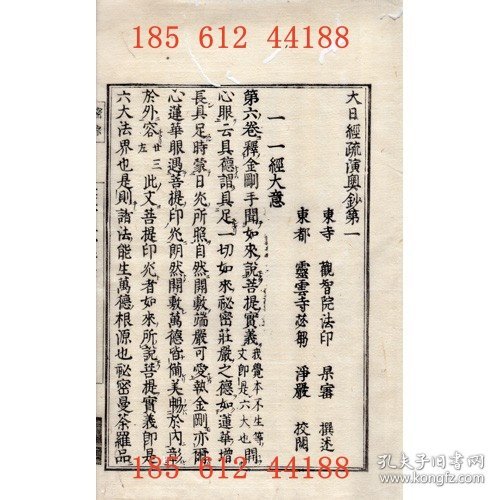 185 612 44188
大日經疏演奧鈔第一
東寺 觀智院法印 杲寶 撰述
東都 靈雲寺苾蒭 淨嚴 校閱
一一經大意
第六卷釋金剛手聞如來說菩提實義我覺本不生等
文即是六大也聞
心眼云具德謂具足一切如來祕密莊嚴之德如蓮華增
長具足時蒙日光所照自然開敷端嚴可愛執金剛亦爾
心蓮華眼遇菩提印光朗然開敷萬德皆備美暢於內彰
於外容廿三左此文菩提印光者如來所說菩提實義即是
六大法界也是則諸法能生萬德根源也祕密曼荼羅品
185 612 44188
孔夫子旧书网